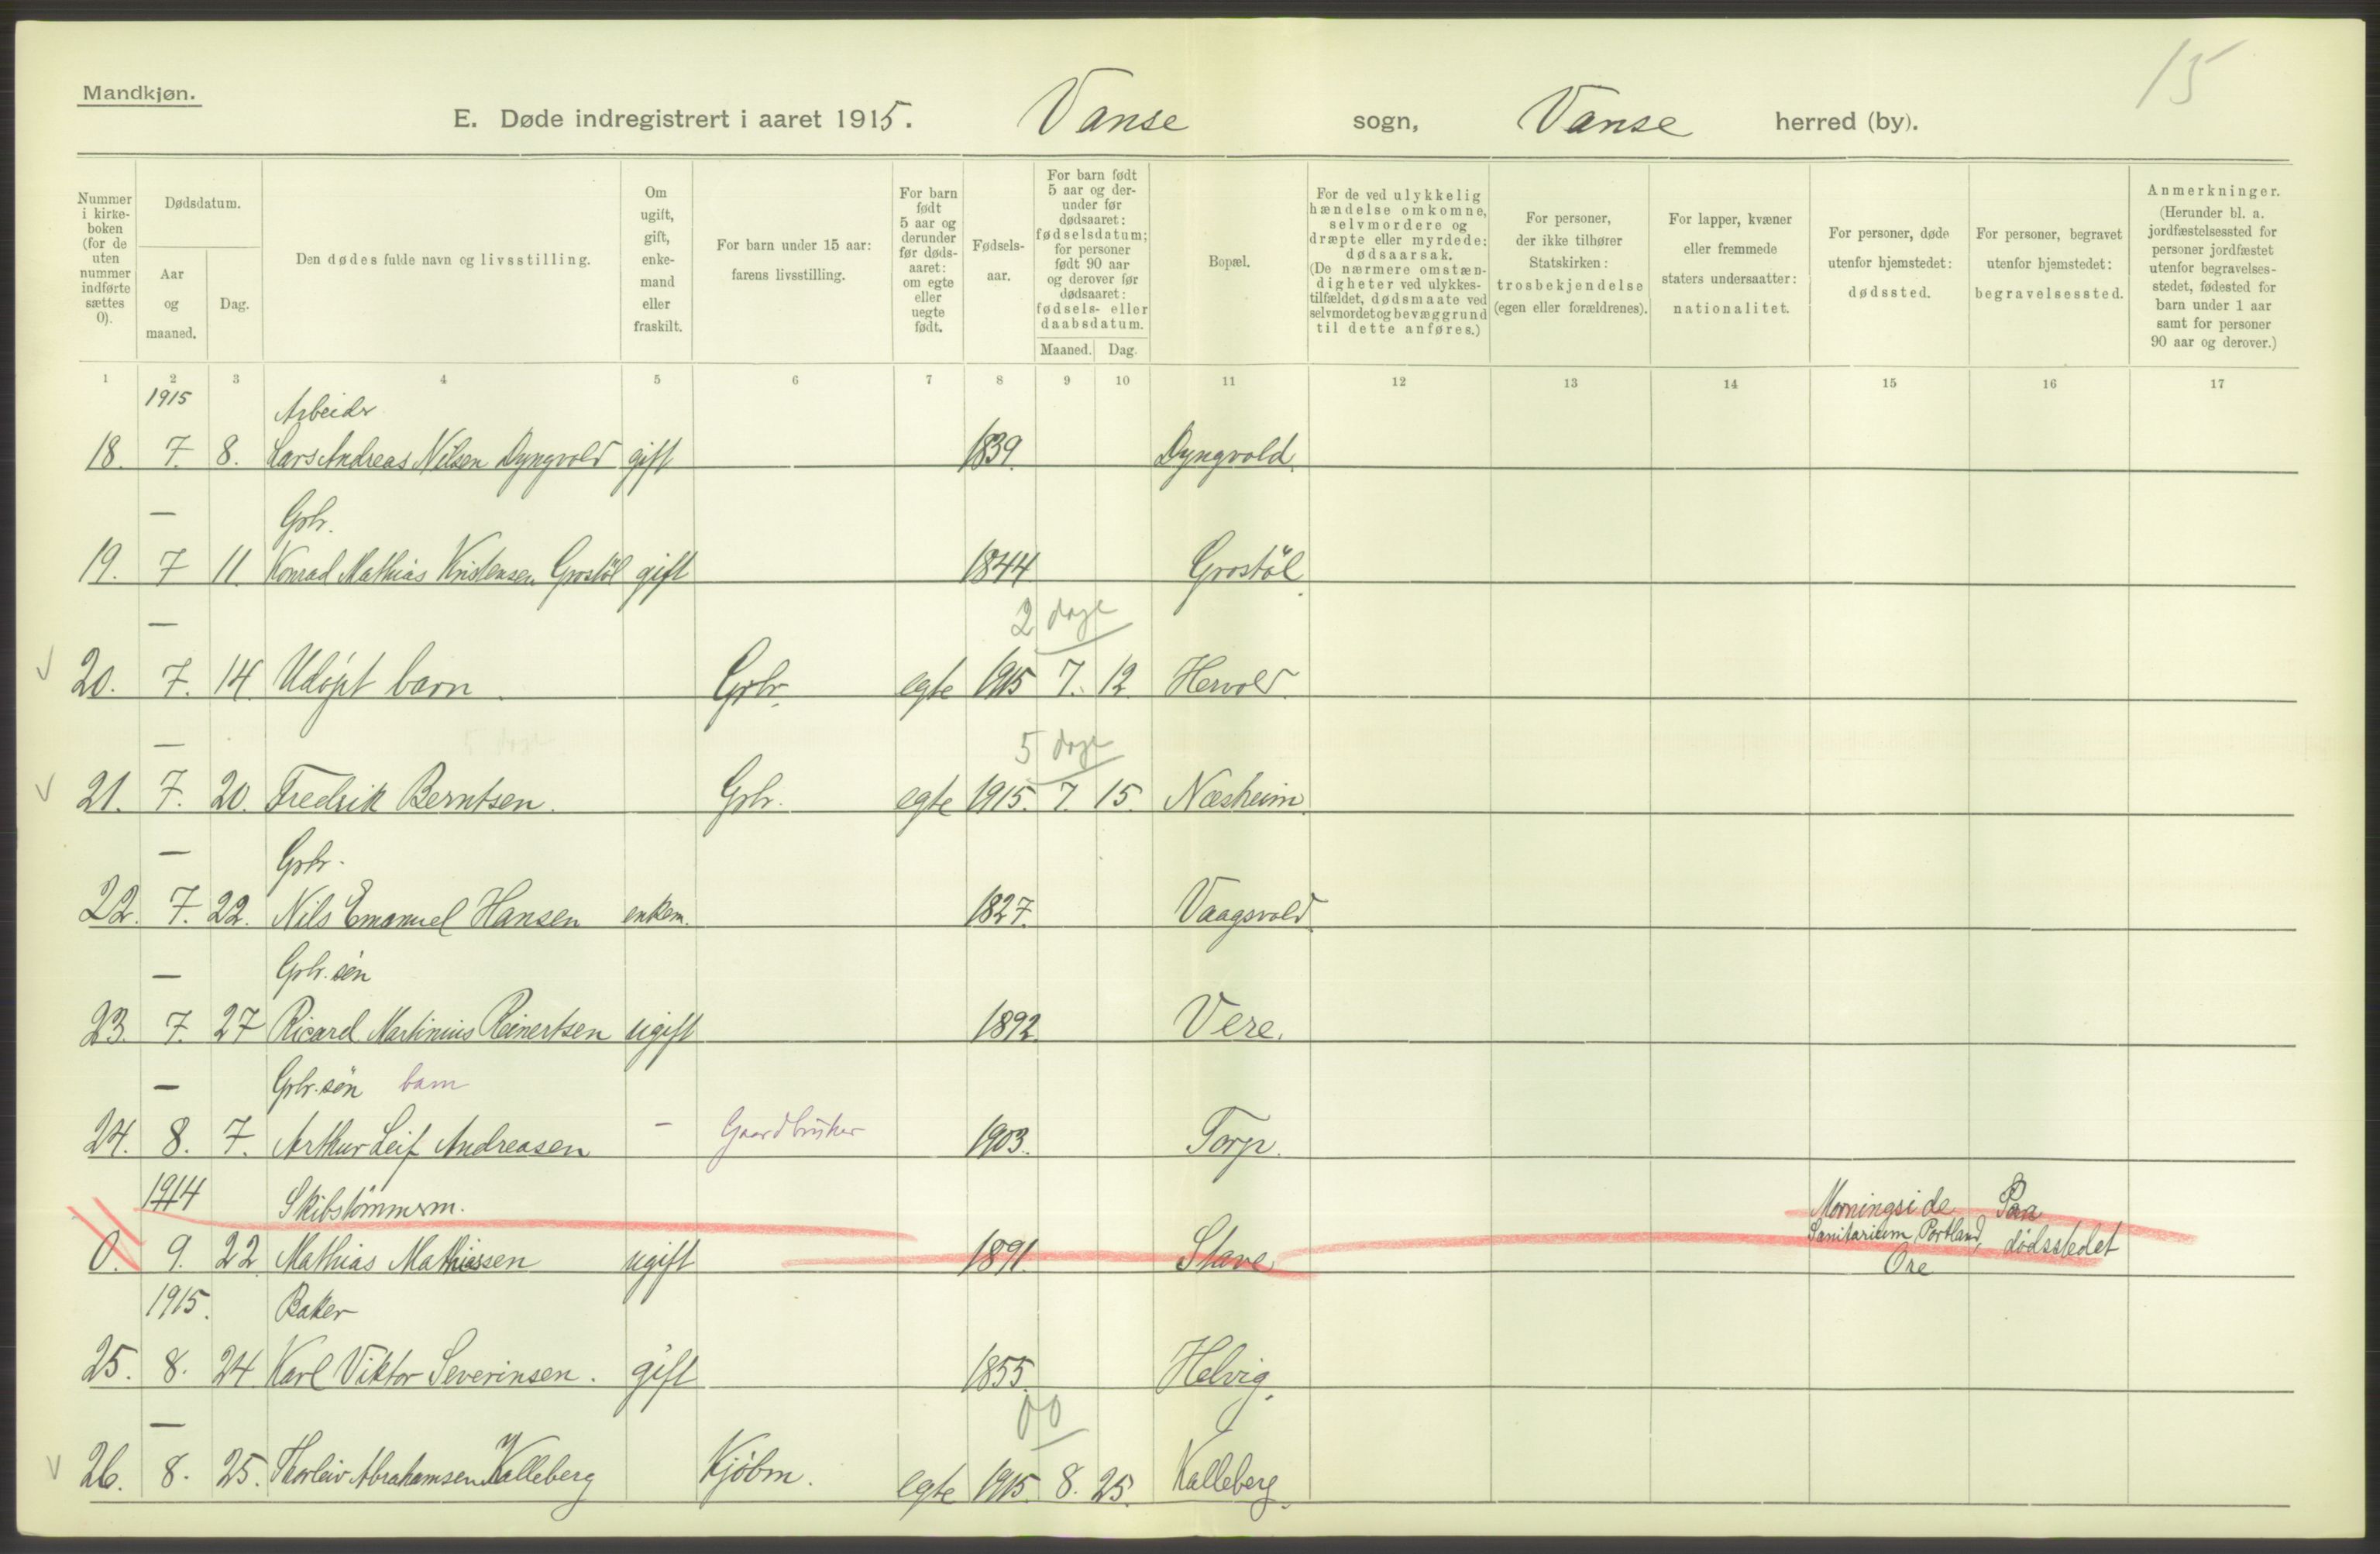 15
Mandkjøn.
E. Døde indregistrert i aaret 1915. Vanse sogn, Vanse herred (by).
Nummer i kirke- boken (for de uten nummer indførte sættes 0).
Dødsdatum.
Aar og maaned.
Dag.
Den dødes fulde navn og livsstilling.
Om ugift, gift, enke- mand eller fraskilt.
For barn under 15 aar: farens livsstilling.
For barn født 5 aar og derunder før døds- aaret: om egte eller uegte født.
Fødsels- aar.
For barn født 5 aar og der- under før dødsaaret: fødselsdatum; for personer født 90 aar og derover før dødsaaret: fødsels- eller daabsdatum.
Maaned. Dag.
Bopæl.
For de ved ulykkelig hændelse omkomne, selvmordere og dræpte eller myrdede: dødsaarsak. (De nærmere omstæn- digheter ved ulykkes- tilfældet, dødsmaate ved selvmordet og bevæggrund til dette anføres.)
For personer, der ikke tilhører Statskirken: trosbekjendelse (egen eller forældrenes).
For lapper, kvæner eller fremmede staters undersaatter: nationalitet.
For personer, døde utenfor hjemstedet: dødssted.
For personer, begravet utenfor hjemstedet: begravelsessted.
Anmerkninger. (Herunder bl. a. jordfæstelsessted for personer jordfæstet utenfor begravelses- stedet, fødested for barn under 1 aar samt for personer 90 aar og derover.)
1 2 3 4 5 6 7 8 9 10 11 12 13 14 15 16 17
1915 Arbeider
18. 7. 8. Lars Andreas Nilsen Dyngvold gift 1839. Dyngvold.
— Gbr.
19. 7 11. Konrad Mathias Kristensen Grostöl gift 1844 Grostöl.
— 2 dage
20. 7. 14. Udøpt barn. Gbr. egte 1915 7. 12. Hervold.
— 5 dage 5 dage
21. 7. 20. Fredrik Berntsen. Gbr. egte 1915. 7. 15. Næsheim.
— Gbr.
22. 7. 22. Nils Emanuel Hansen enkem. 1827. Vaagsvold.
— Gbr. søn
23. 7. 27 Ricard Martinius Reinertsen ugift 1892. Vere.
— Gbr. søn barn
24. 8. 7. Arthur Leif Andreasen - Gaardbruker 1903. Torp.
1914 Skibstömmerm. Morningside Paa
0. 9. 22 Mathias Mathiassen ugift 1891. Stave Sanitarium, Portland, dødsstedet
Ore
1915. Baker
25. 8. 24 Karl Viktor Severinsen. gift 1855. Helvig.
— 00
26. 8. 25. Thorleiv Abrahamsen Kalleberg Kjøbm. egte 1915. 8. 25. Kalleberg.